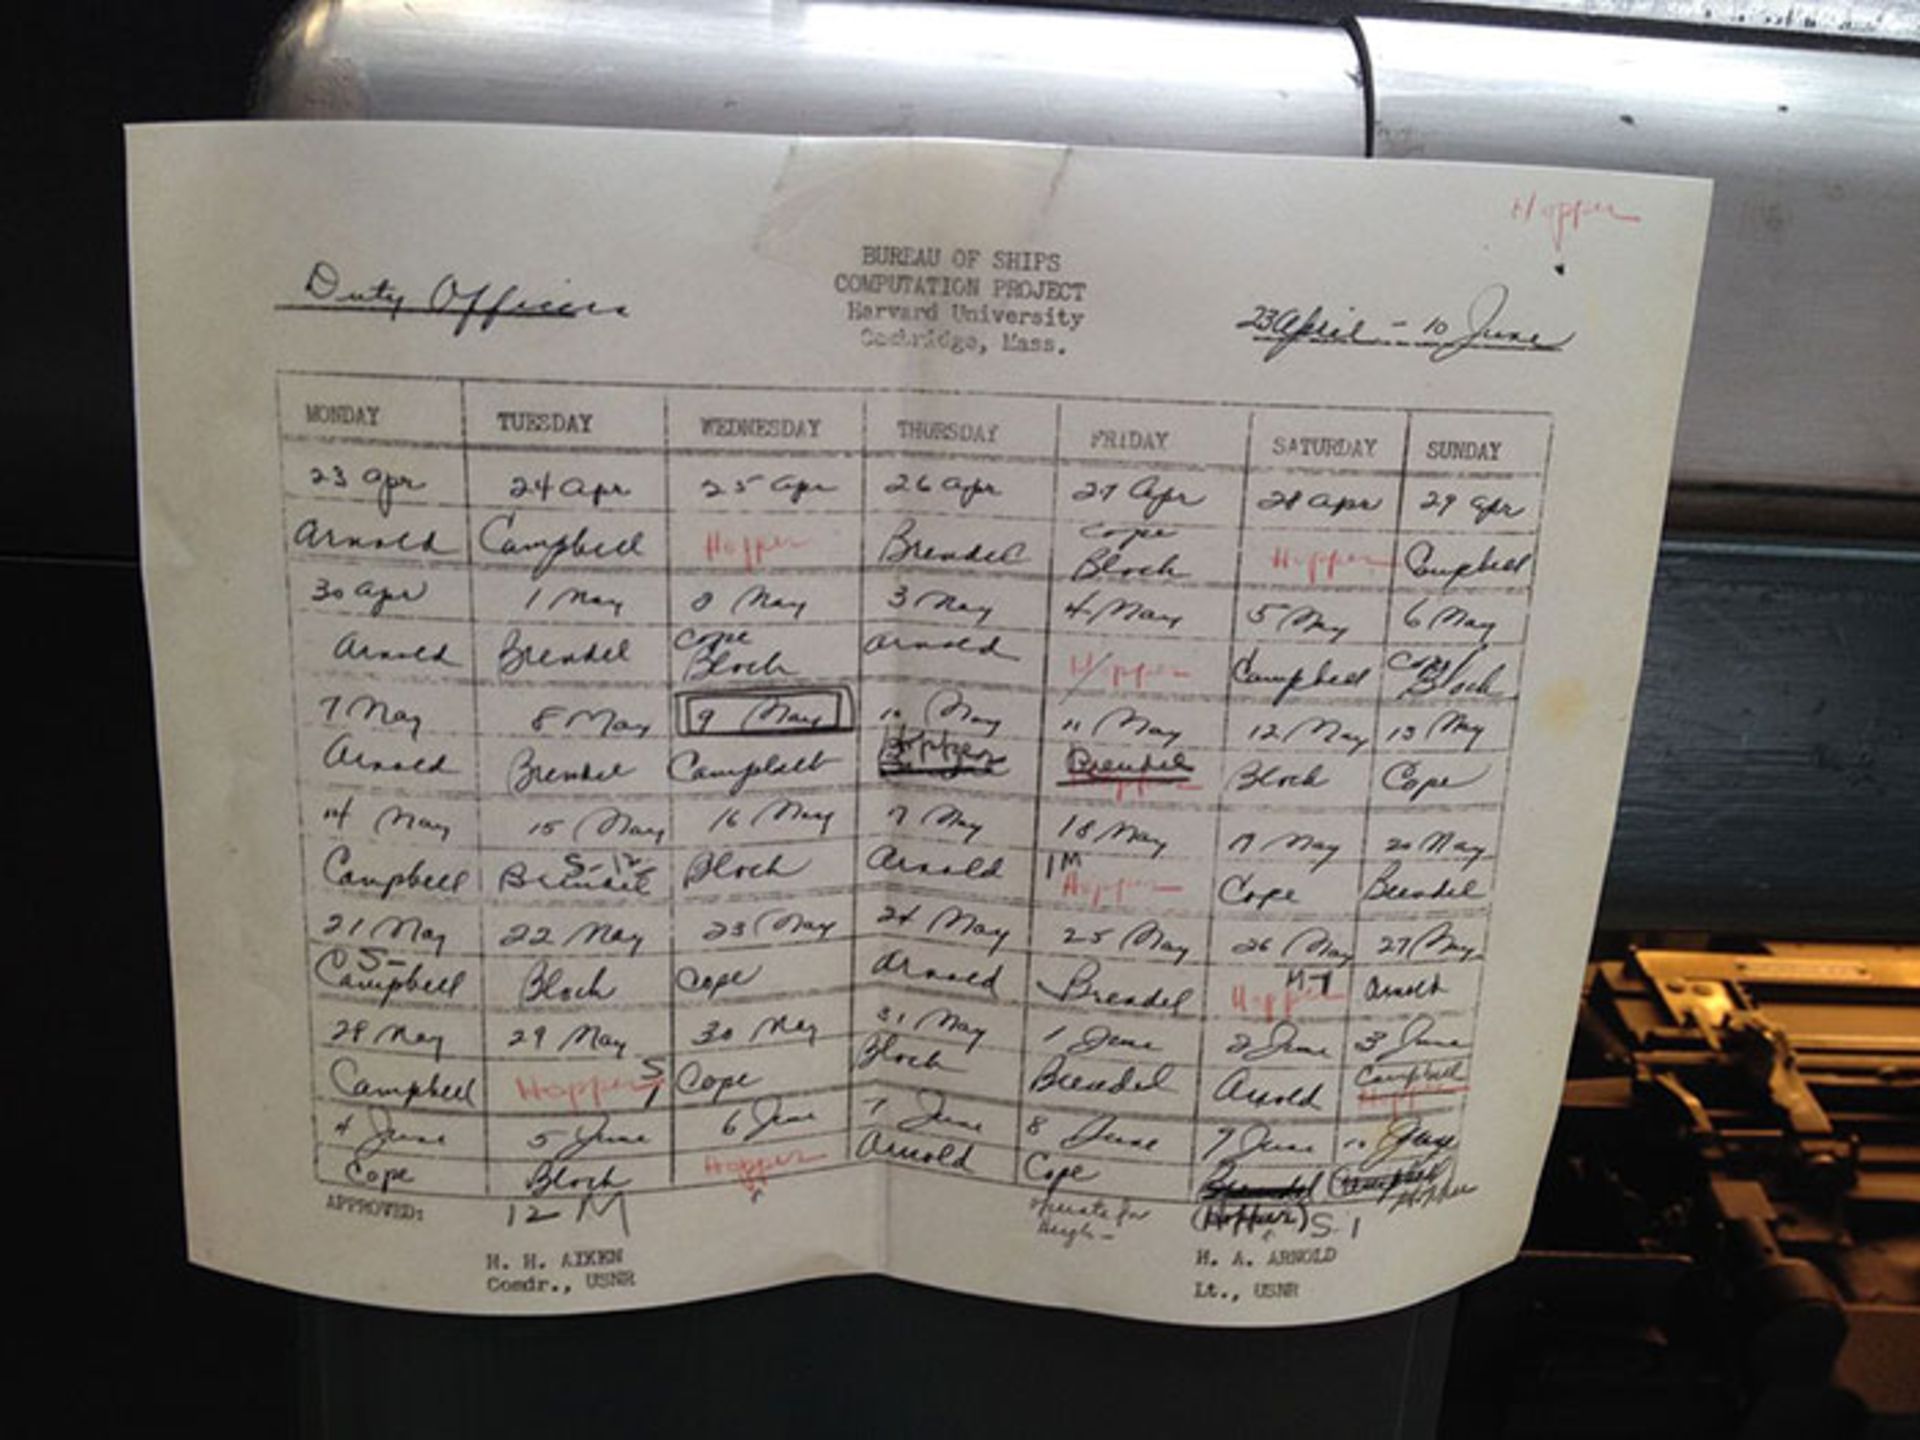 Hopper
BUREAU OF SHIPS
COMPUTATION PROJECT
Duty Officers
Harvard University
23 April - 10 June
Cambridge, Mass.
MONDAY TUESDAY WEDNESDAY THURSDAY FRIDAY SATURDAY SUNDAY
23 Apr 24 Apr 25 Apr 26 Apr 27 Apr 28 Apr 29 Apr
Arnold Campbell Hopper Brendel Cope Bloch Hopper Campbell
30 Apr 1 May May 3 May 4 May 5 May 6 May
Arnold Brendel Cope Bloch Arnold Hopper Campbell Cope Bloch
7 May 8 May 9 May 10 May 11 May 12 May 13 May
Arnold Brendel Campbell Hopper Brendel Hopper Bloch Cope
14 May 15 May 16 May 17 May 18 May 19 May 20 May
Campbell Brendel S-12 Bloch Arnold 1M Hopper Cope Brendel
21 May 22 May 23 May 24 May 25 May 26 May 27 May
S- Campbell Bloch Cope Arnold Brendel Hopper Arnold
28 May 29 May 30 May 31 May 1 June 2 June 3 June
Campbell Hopper S 1 Cope Bloch Brendel Arnold Campbell Hopper
4 June 5 June 6 June 7 June 8 June 9 June 10
Cope Bloch Hopper Arnold Cope Brendel Campbell Hopper
APPROVED: 12 M operate for (Hopper) S 1
H. H. AIKEN H. A. ARNOLD
Comdr., USNR Lt., USNR